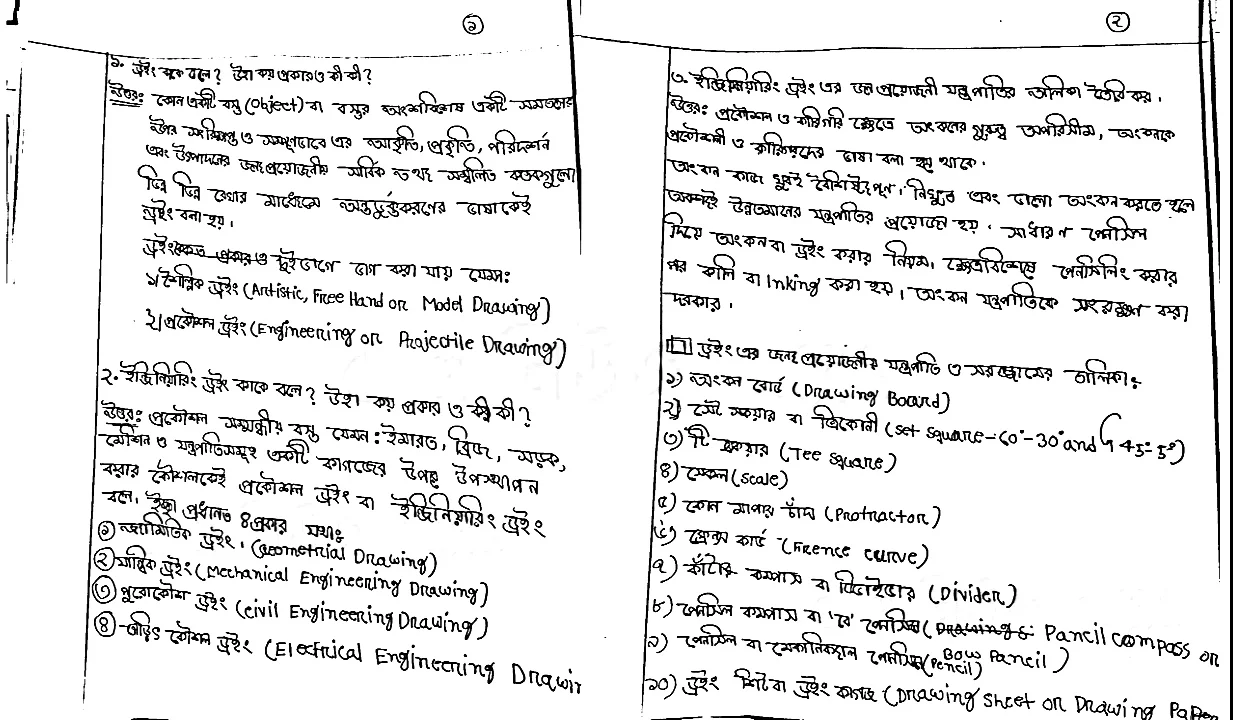 ১
১. ড্রইং কাকে বলে? উহা কয় প্রকার ও কী কী?
উত্তরঃ কোন একটি বস্তু (Object) বা বস্তুর অংশবিশেষ একটি সমতলের
উপর সংক্ষিপ্ত ও সম্পূর্ণভাবে এর আকৃতি, প্রকৃতি, পরিদর্শন
এবং উৎপাদনের জন্য প্রয়োজনীয় সার্বিক তথ্য সম্বলিত কতকগুলো
ভিন্ন ভিন্ন রেখার মাধ্যমে অন্তর্ভুক্তকরণের ভাষাকেই
ড্রইং বলা হয়।
ড্রইংকে প্রকার ও দুইভাগে ভাগ করা যায় যেমন:
১) শৈল্পিক ড্রইং (Artistic, Free Hand or Model Drawing)
২) প্রকৌশল ড্রইং (Engineering or Projectile Drawing)
২. ইঞ্জিনিয়ারিং ড্রইং কাকে বলে? উহা কয় প্রকার ও কী কী?
উত্তর: প্রকৌশল সম্মন্ধীয় বস্তু যেমন: ইমারত, ব্রিজ, সড়ক,
মেশিন ও যন্ত্রপাতিসমূহ একটি কাগজের উপর উপস্থাপন
করার কৌশলকেই প্রকৌশল ড্রইং বা ইঞ্জিনিয়ারিং ড্রইং
বলে। ইহা প্রধানত ৪ প্রকার যথাঃ
১) জ্যামিতিক ড্রইং। (Geometrial Drawing)
২) যান্ত্রিক ড্রইং (Mechanical Engineering Drawing)
৩) পুরোকৌশল ড্রইং (civil Engineering Drawing)
৪) তড়িৎ কৌশল ড্রইং (Electrical Engineering Drawin
২
৩. ইঞ্জিনিয়ারিং ড্রইং এর জন্য প্রয়োজনী যন্ত্রপাতির তালিকা তৈরি কর।
উত্তর: প্রকৌশল ও কারিগরি ক্ষেত্রে অংকনের গুরুত্ব অপরিসীম, অংকনকে
প্রকৌশলী ও কারিগরদের ভাষা বলা হয় থাকে।
অংকন কাজ খুবই বৈশিষ্ট্যপূর্ণ। নিখুত এবং ভালো অংকন করতে হলে
অবশ্যই উন্নতমানের যন্ত্রপাতির প্রয়োজন হয়। সাধারণ পেনসিল
দিয়ে অংকন বা ড্রইং করার নিয়ম। ক্ষেত্রবিশেষে পেনসিলিং করার
পর কালি বা Inking করা হয়। অংকন যন্ত্রপাতিকে সংরক্ষণ করা
দরকার।
ড্রইং এর জন্য প্রয়োজনীয় যন্ত্রপাতি ও সরঞ্জামের তালিকা:
১) অংকন বোর্ড (Drawing Board)
২) সেট স্কয়ার বা ত্রিকোনী (Set square-60°-30° and 45°-5°)
৩) টি স্কয়ার (Tee square)
৪) স্কেল (Scale)
৫) কোন মাপার চাঁদা (Protractor)
৬) ফ্রেন্স কার্ভ (Frence curve)
৭) কাঁটার কম্পাস বা ডিভাইডার (Divider)
৮) পেনসিল কম্পাস বা 'বো' পেনসিল (Drawing S: Pancil compass or
Bow Pancil)
৯) পেনসিল বা মেকানিক্যাল পেনসিল (Pencil)
১০) ড্রইং শিট বা ড্রইং কাগজ (Drawing Sheet or Drawing Paper